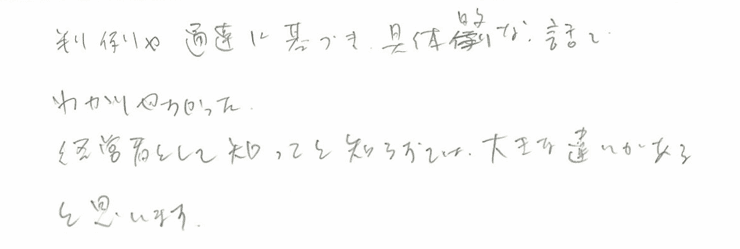 判例や通達に基づき、具体的な話で
わかりやすかった。
経営者として知ってると知らずでは、大きな違いがある
と思います。